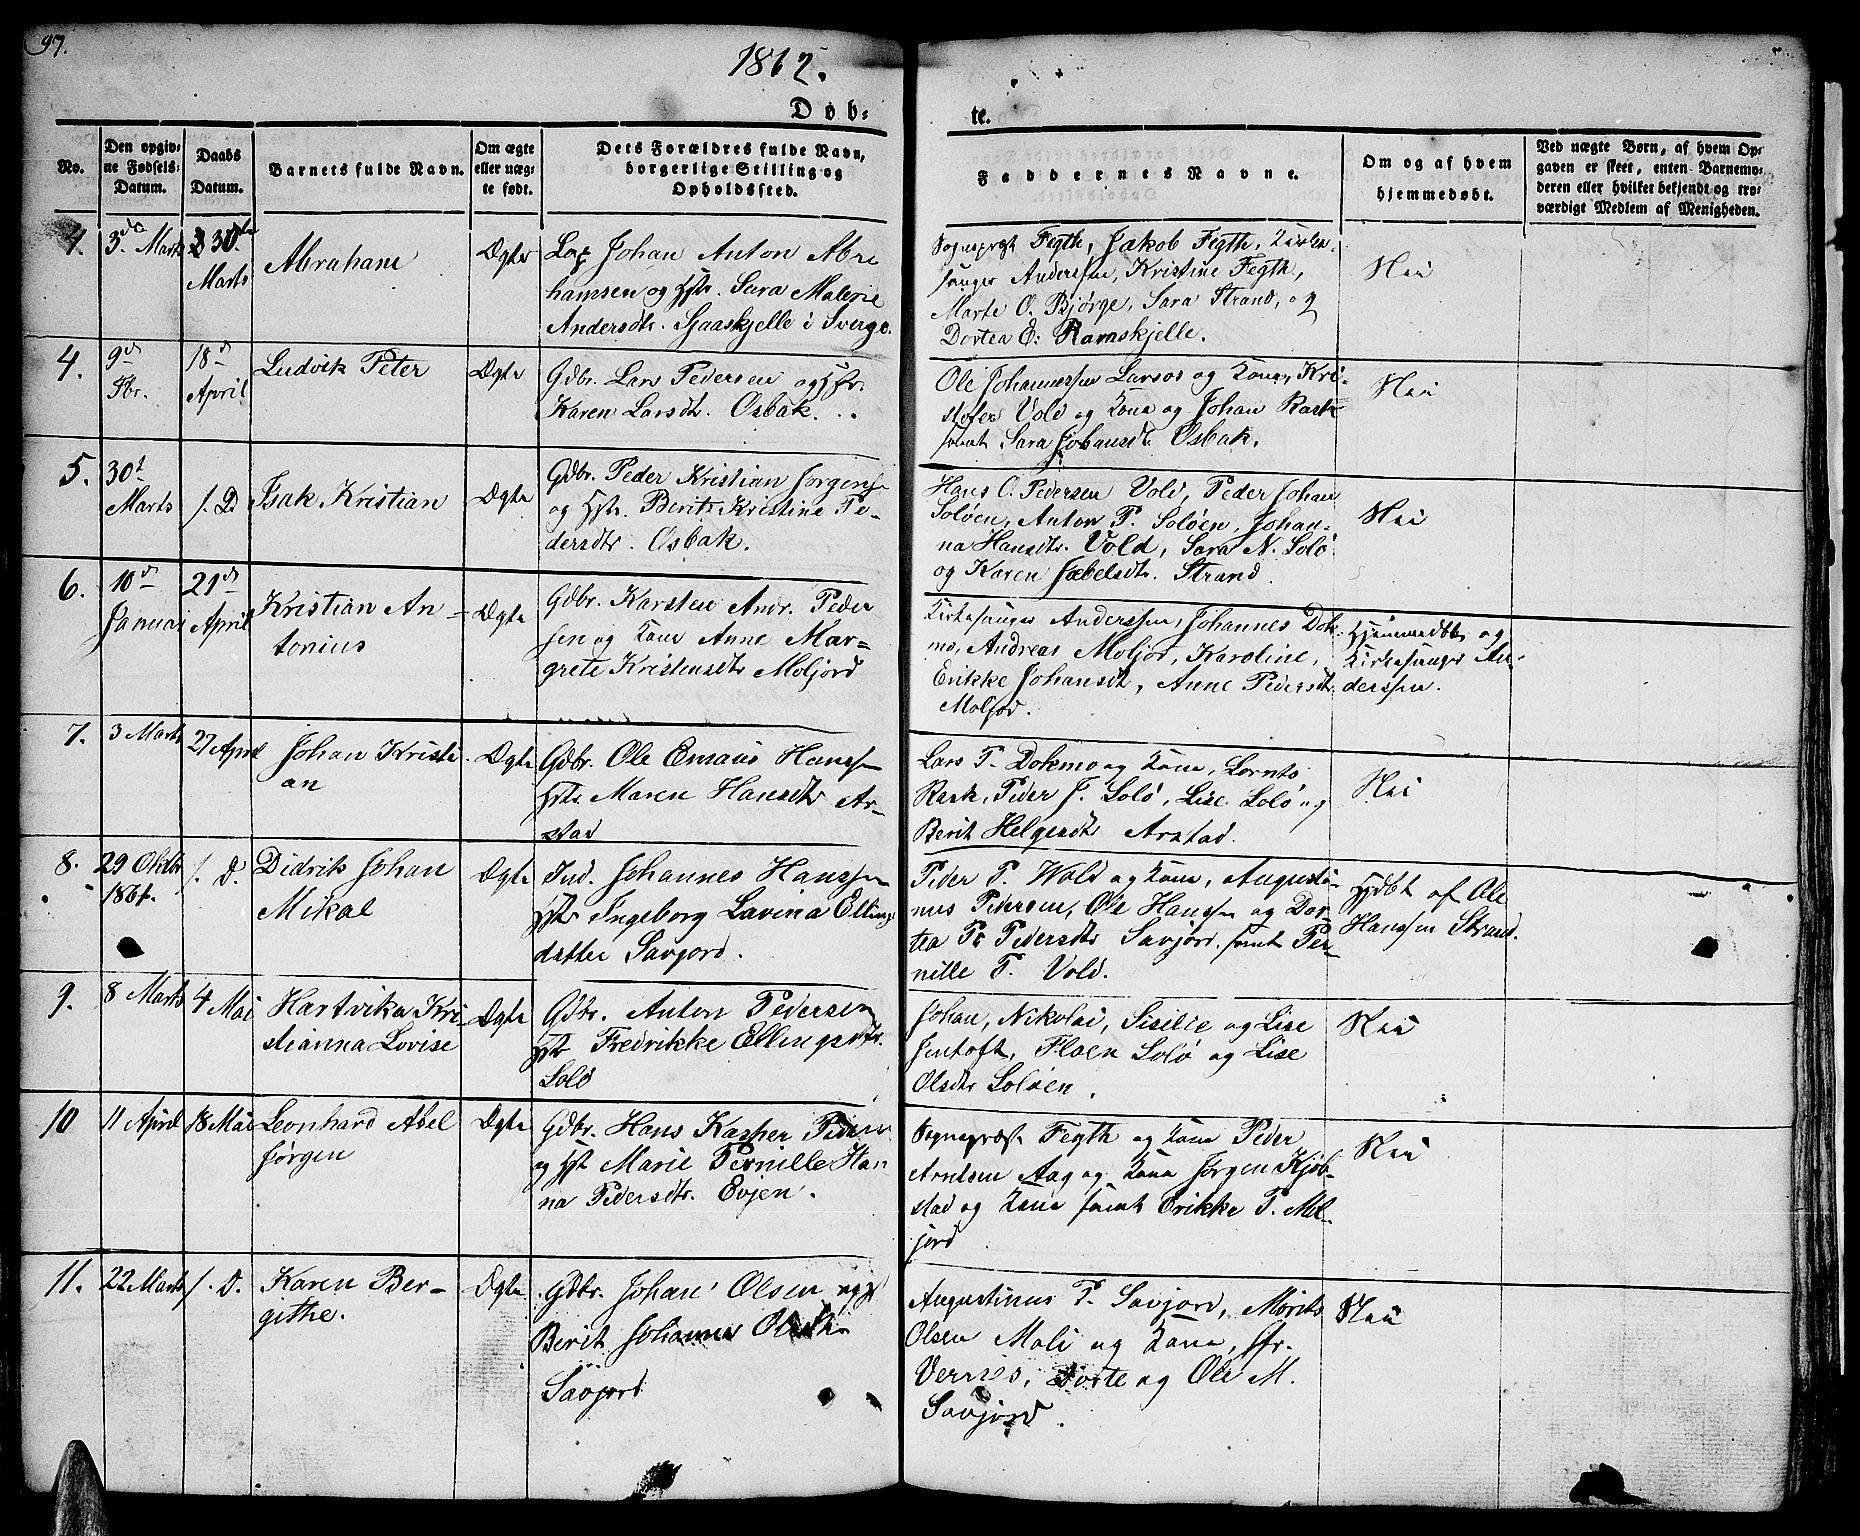 97.
1862.
Døb-
te.
No.
Den opgiv-
ne Fødsels-
Datum.
Daabs
Datum.
Barnets fulde Navn.
Om ægte
eller uæg-
te født.
Dets Forældres fulde Navn,
borgerlige Stilling og
Opholdssted.
Faddernes Navne.
Om og af hvem
hjemmedøbt.
Ved uægte Børn, af hvem Op-
gaven er skeet, enten Barnemo-
deren eller hvilket bekjendt og tro-
værdigt Medlem af Menigheden.
4.
3die Marts
30te
Marts
Abraham
Ægte
Lap Johan Anton Abra
hamsen og Hstr. Sara Malene
Andersdtr. Sjaaskjelle i Sverge.
Sognepræst Fegth, Jakob Fegth, Kirke-
sanger Anderssen, Kristine Fegth,
Marte O. Bjørge, Sara Strand, og
Dortea E. Ramskjelle.
Nei
4.
9d
Fbr.
18d
April
Ludvik Peter
Ægte
Gdbr. Lars Pedersen og Hstr.
Karen Larsdt. Osbak.
Ole Johannessen Larsos og Kone, Kri-
stofer Vold og Kone og Johan Rask
samt Sara Johansdt. Osbak.
Nei
5.
30t
Marts
s. D
Isak Kristian
Ægte
Gdbr. Peder Kristian Jørgens.
og Hstr. Berit Kristine Pe-
dersdtr. Osbak.
Hans C. Pedersen Vold, Peder Johan
Soløen, Anton P. Soløen, Johan-
na Hansdtr. Vold, Sara N. Solø
og Karen Jæbelsdtr. Strand.
Nei
6.
10d
Januai
21d
April
Kristian An-
tonius
Ægte
Gdbr. Karsten Andr. Peder
sen og Kone Anne Mar-
grete Kristensdtr Moljord
Kirkesanger Anderssen, Johannes Dok-
mo, Andreas Moljor, Karoline,
Erikke Johansdt, Anne Pedersdt
Moljord.
Hjemmedøbt og
Kirkesanger An-
derssen.
7.
3 Marts
27 April
Johan Kristi-
an
Ægte
Gdbr. Ole Emaus Hanssen
Hstr Maren Hansdtr Ar-
stad
Lars T. Dokmo og Kone, Lornts
Rask, Peder J. Solø, Lise Solø og
Berit Helgesdtr Arstad.
Nei
8.
29 Oktbr
1861.
s. D.
Didrik Johan
Mikal
Ægte
Ind. Johannes Hanssen
Hstr Ingeborg Lavina Ellings
datter Savjord.
Peder P. Wold og Kone, Augusti-
nus Pedersen, Ole Hanssen og Dor-
tea P. Pedersdtr Savjord, samt Per-
nille P. Vold.
Hjdbt af Ole
Hanssen Strand.
9.
8 Marts
4 Mai
Hartvika Kri-
stianna Lovise
Ægte
Gdbr. Anton Pedersen
Hstr Fredrikke Ellingsdtr.
Solø
Johan, Nikolai, Sisilie og Lise
Jentoft, Floen Solø og Lise
Olsdtr Soløen.
Nei
10
11 April
18 Mai
Leonhard Abel
Jørgen
Ægte
Gdbr. Hans Kasper Peders.
og Hst Marie Pernille Han
na Pedersdtr. Evjen.
Sognepræst Fegth og Kone Peder
Arntsen Aag og Kone Jørgen Kjøb-
stad og Kone samt Erikke P. Mol-
jord
Nei
11.
22 Marts
s. D.
Karen Ber-
githe.
Ægte
Gdbr. Johan Olsen og
Berit Johanna Olsdtr.
Savjord
Augustinus P. Savjord, Morits
Olsen Moli og Kone, Hr.
Vernes, Dorte og Ole M.
Savjord.
Nei